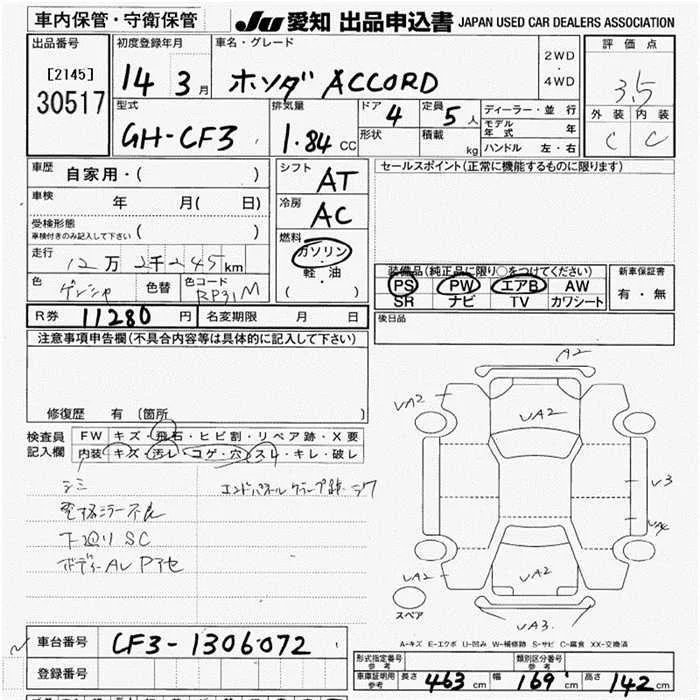 車内保管・守衛保管
JU 愛知 出品申込書 JAPAN USED CAR DEALERS ASSOCIATION
出品番号
[2145]
30517
初度登録年月
14 3月
車名・グレード
ホンダ ACCORD
2WD
・
4WD
評価点
3.5
外装 内装
C C
型式
GH-CF3
排気量
1.84 CC
ドア 4
定員 5人
形状
積載 kg
ディーラー・並行
モデル年式 年
ハンドル 左・右
車歴 自家用・( )
車検 年 月( 日)
受検形態
車検付きのみ記入して下さい ( )
走行 12万2千245km
色 色替 色コード
RP31M
シフト AT
冷房 AC
燃料
ガソリン
・
軽・油
( )
セールスポイント(正常に機能するものに限ります)
装備品(純正品に限り○をつけてください)
PS PW エアB AW
SR ナビ TV カワシート
新車保証書
有・無
後日品
R券 11280 円 名変期限 月 日
注意事項申告欄(不具合内容等は具体的に記入して下さい)
修復歴 有(箇所 )
検査員記入欄
FW キズ・飛石・ヒビ割・リペア跡・X要
内装 キズ・汚レ・コゲ・穴・スレ・キレ・破レ
シミ
下廻リ SC
A2
VA2 VA2
V3
VA2 VA2
VA3
スペア
A-キズ E-エクボ U-凹み W-補修跡 S-サビ C-腐食 XX-交換済
車台番号 CF3-1306072
登録番号
形式指定番号参考 類別区分番号参考
車庫証明用参考 長さ 463cm 幅 169cm 高さ 142cm